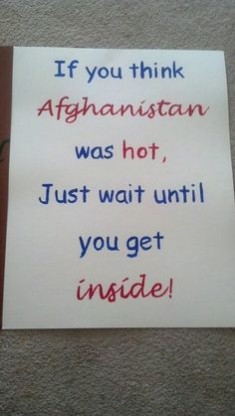 If you think
Afghanistan
was hot,
Just wait until
you get
inside!